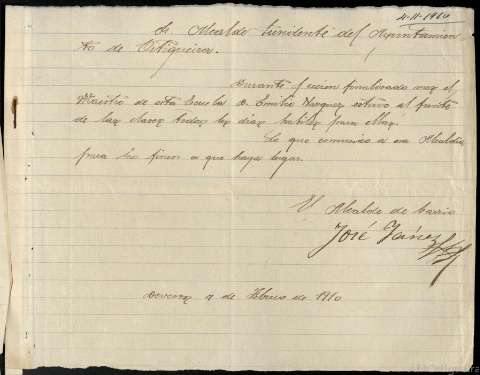 4-11-1910
Sr. Alcalde Presidente del Ayuntamien
to de Ortigueira.
Durante el mes el
Maestro de esta Escuela D. Emilio Vazquez estuvo al frente
de las clases todos los días habiles para ellas.
Lo que comunico a esa Alcaldia
para los fines a que haya lugar.
El Alcalde de barrio
José Yañez
de Febrero de 1910